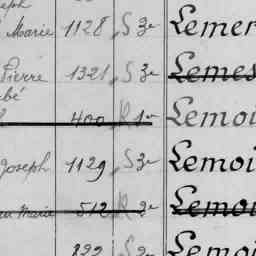 Marie 1128 S 3e Lemer
Pierre 1321 S 3e Lemes
400 R 1er Lemoi
Joseph 1129 S 3e Lemoi
Marie 512 R 3e Lemoi
S Lemoi